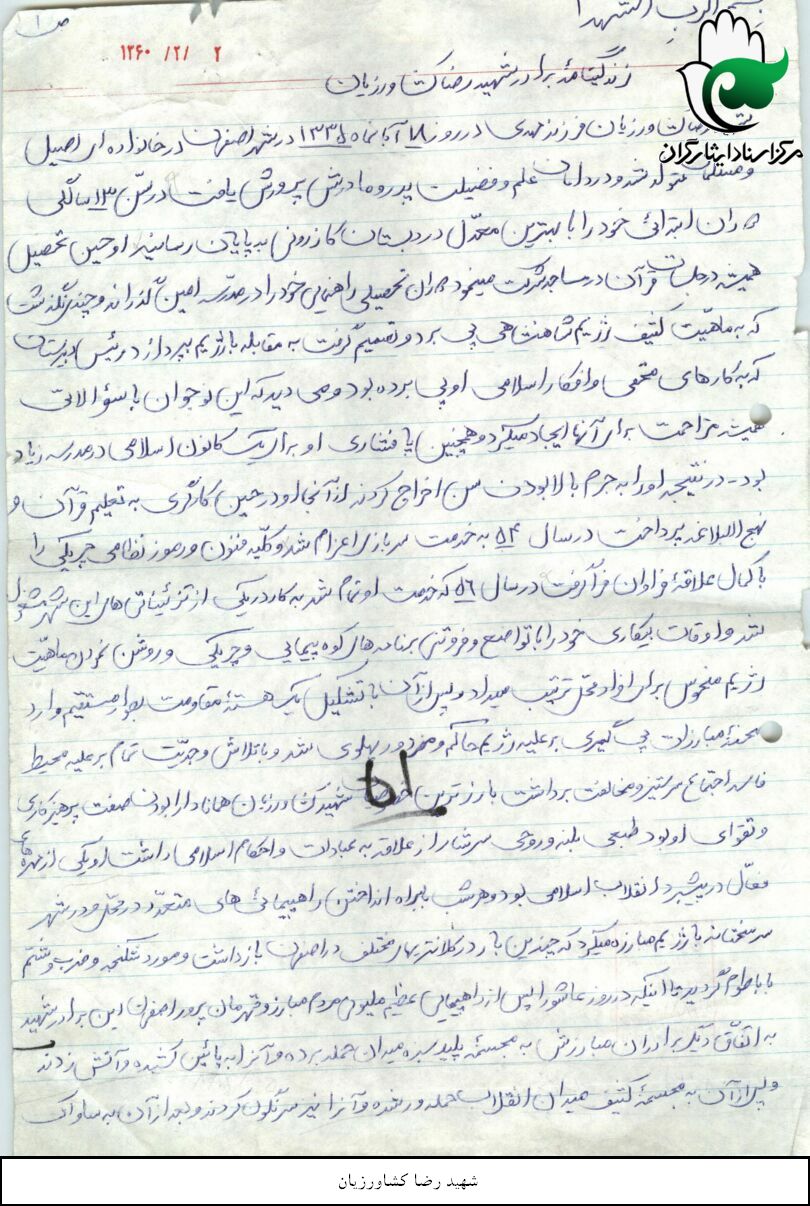 بسم الرب الشهدا
ص ۱
۱۳۶۰ /۲/ ۲
زندگینامهٔ برادر شهید رضا کشاورزیان
مرکز اسناد ایثارگران
کشاورزیان فرزند مهدی در روز ۱۸ آبانماه ۱۳۳۵ در شهر اصفهان در خانواده ای اصیل
و مسلمان متولد شد و در دامان علم و فضیلت پدر و مادرش پرورش یافت در سن ۱۳ سالگی
دوران ابتدائی خود را با بهترین معدّل در دبستان کازرونی به پایان رسانید او حین تحصیل
همیشه در جلسات قرآن در مساجد شرکت مینمود دوران تحصیلی راهنمایی خود را در مدرسه امین گذراند و چندی نگذشت
که به ماهیّت کثیف رژیم شاهنشاهی پی برد و تصمیم گرفت به مقابله با رژیم بپردازد رئیس دبیرستان
که به کارهای مخفی و افکار اسلامی او پی برده بود و می دید که این نوجوان با سؤالاتی
همیشه مزاحمت برای آنها ایجاد میکرد و همچنین پافشاری او برای یک کانون اسلامی در مدرسه زیاد
بود - در نتیجه او را به جرم بالا بودن سن اخراج کردند از آنجا او در حین کارگری به تعلیم قرآن و
نهج البلاغه پرداخت در سال ۵۴ به خدمت سربازی اعزام شد و کلّیه فنون و رموز نظامی چریکی را
با کمال علاقهٔ فراوان فرا گرفت در سال ۵۶ که خدمت او تمام شد به کار در یکی از تزئیناتی های این شهر مشغول
شد و اوقات بیکاری خود را با تواضع و فروتنی برنامه های کوه پیمایی و چریکی و روشن نمودن ماهیّت
رژیم منحوس برای افراد محل ترتیب میداد و پس از آن با تشکیل یک هستهٔ مقاومت بطور مستقیم وارد
صحنهٔ مبارزات پی گیری بر علیه رژیم حاکم و مزدور پهلوی شد و با تلاش و جدیّت تمام بر علیه محیط
فاسد اجتماع سرستیز و مخالفت برداشت بارزترین شهید کشاورزیان همانا دارا بودن صفت پرهیزکاری
و تقوای او بود طبعی بلند و روحی سرشار از علاقه به عبادات و احکام اسلامی داشت او یکی از مهره های
فعّال در پیشبرد انقلاب اسلامی بود و هر شب با براه انداختن راهپیمائی های متعدّد در محل و در شهر
سرسختانه با رژیم مبارزه میکرد که چندین بار در کلانتریهای مختلف در اصفهان بازداشت و مورد شکنجه و ضرب و شتم
با باطوم گردید تا اینکه در روز عاشورا پس از راهپیمایی عظیم ملیونی مردم مبارز و قهرمان پرور اصفهان این برادر شهید
به اتفّاق دیگر برادران مبارزش به مجسمهٔ پلید سبزه میدان حمله برده و آنرا به پائین کشیده و آتش زدند
و پس از آن به مجسمهٔ کثیف میدان انقلاب حمله ور شده و آنرا نیز سرنگون کردند و بعد از آن به ساواک
شهید رضا کشاورزیان